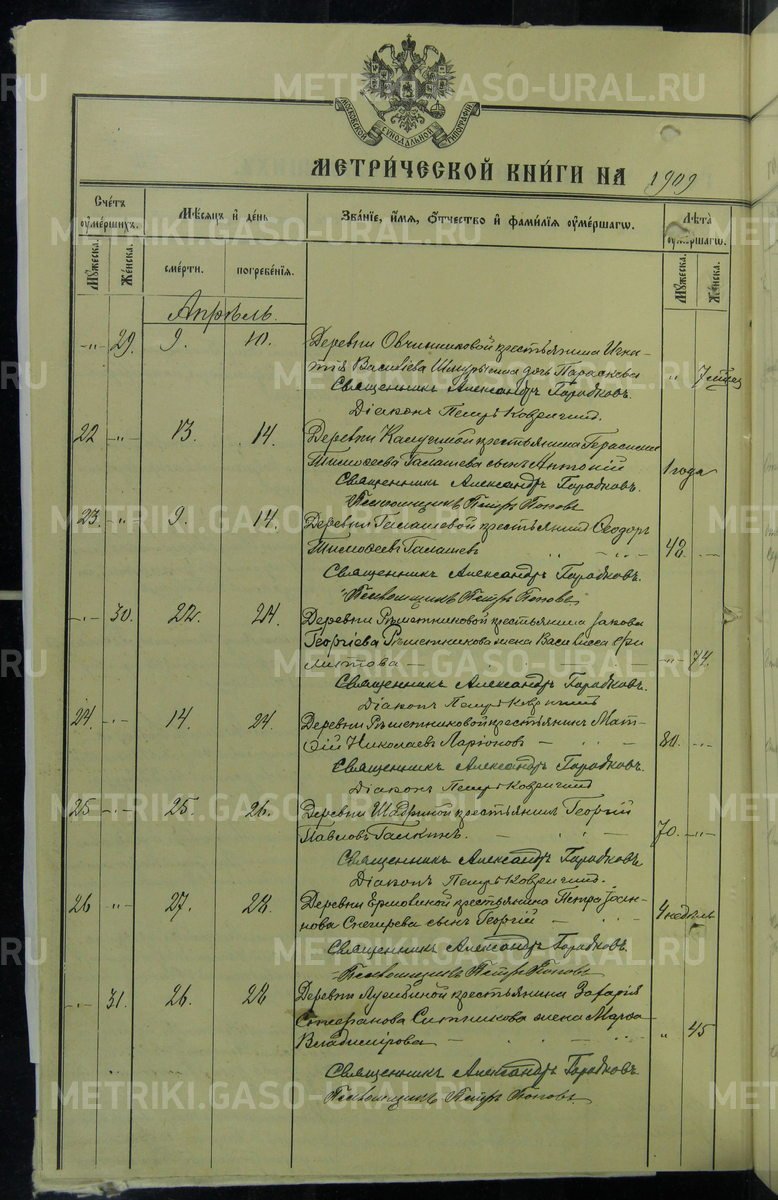 МОСКОВСКОЙ СѴНОДАЛЬНОЙ ТИПОГРАФІИ
МЕТРИ́ЧЕСКОЙ КНИ́ГИ НА 1909
Сче́тъ оуме́ршихъ. Мѣ́сяцъ и҆ де́нь Зва́нїе, и҆́мя, ѻ҆́тчество и҆ фами́лїя оуме́ршагѡ. Лѣ́та оуме́ршагѡ.
Мꙋ́жеска. Же́нска. сме́рти. погребе́нїя. Мꙋ́жеска. Же́нска.
Апрѣль.
-„- 29. 9. 10. Деревни Овчинниковой крестьянина Игна-
тія Василіева дочь Параскева „ 7
Священникъ Александръ Городковъ.
Діаконъ Петръ
22 -„- 13. 14. Деревни крестьянина Герасима
Тимоѳеева Галашева сынъ Антоній 1 года
Священникъ Александръ Городковъ.
Псаломщикъ Петръ Поповъ
23. -„- 9. 14. Деревни Галашевой крестьянинъ Ѳеодоръ
Тимоѳеевъ Галашевъ 42 -„-
Священникъ Александръ Городковъ.
Псаломщикъ Петръ Поповъ
-„- 30. 22. 24. Деревни Рѣшетниковой крестьянина Іакова
Георгіева Рѣшетникова жена Васса
-„- 74.
Священникъ Александръ Городковъ.
Діаконъ Петръ
24. -„- 14. 24. Деревни Рѣшетниковой крестьянинъ Мат-
ѳій Николаевъ Ларіоновъ 80. -„-
Священникъ Александръ Городковъ.
Діаконъ Петръ
25 -„- 25. 26. Деревни Шадриной крестьянинъ Георгій
Павловъ Галкинъ. 70. -„-
Священникъ Александръ Городковъ
Діаконъ Петръ
26 -„- 27. 28. Деревни Ермовиной крестьянина Петра Іоан-
нова Снегирева сынъ Георгій 4 недѣль
Священникъ Александръ Городковъ.
Псаломщикъ Петръ Поповъ
-„- 31. 26. 28 Деревни крестьянина Захарія
Стефанова Ситникова жена Марѳа
Владимірова „ 45
Священникъ Александръ Городковъ.
Псаломщикъ Петръ Поповъ.
METRIKI.GASO-URAL.RU